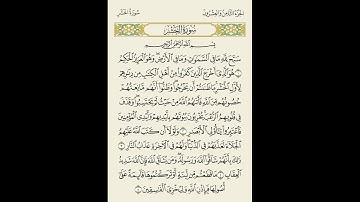 الجزء الثامن والعشرون سورة الحشر
سورة الحشر
بسم الله الرحمن الرحيم
سبح لله ما في السموت وما في الأرض وهو العزيز الحكيم
١ هو الذي أخرج الذين كفروا من أهل الكتب من ديرهم
لأول الحشر ما ظننتم أن يخرجوا وظنوا أنهم مانعتهم
حصونهم من الله فأتىهم الله من حيث لم يحتسبوا وقذف
في قلوبهم الرعب يخربون بيوتهم بأيديهم وأيدي المؤمنين
فاعتبروا يأولي الأبصر ٢ ولولا أن كتب الله عليهم
الجلاء لعذبهم في الدنيا ولهم في الآخرة عذاب النار ٣
ذلك بأنهم شاقوا الله ورسوله ومن يشاق الله فإن الله شديد
العقاب ٤ ما قطعتم من لينة أو تركتموها قائمة على
أصولها فبإذن الله وليخزي الفسقين ٥